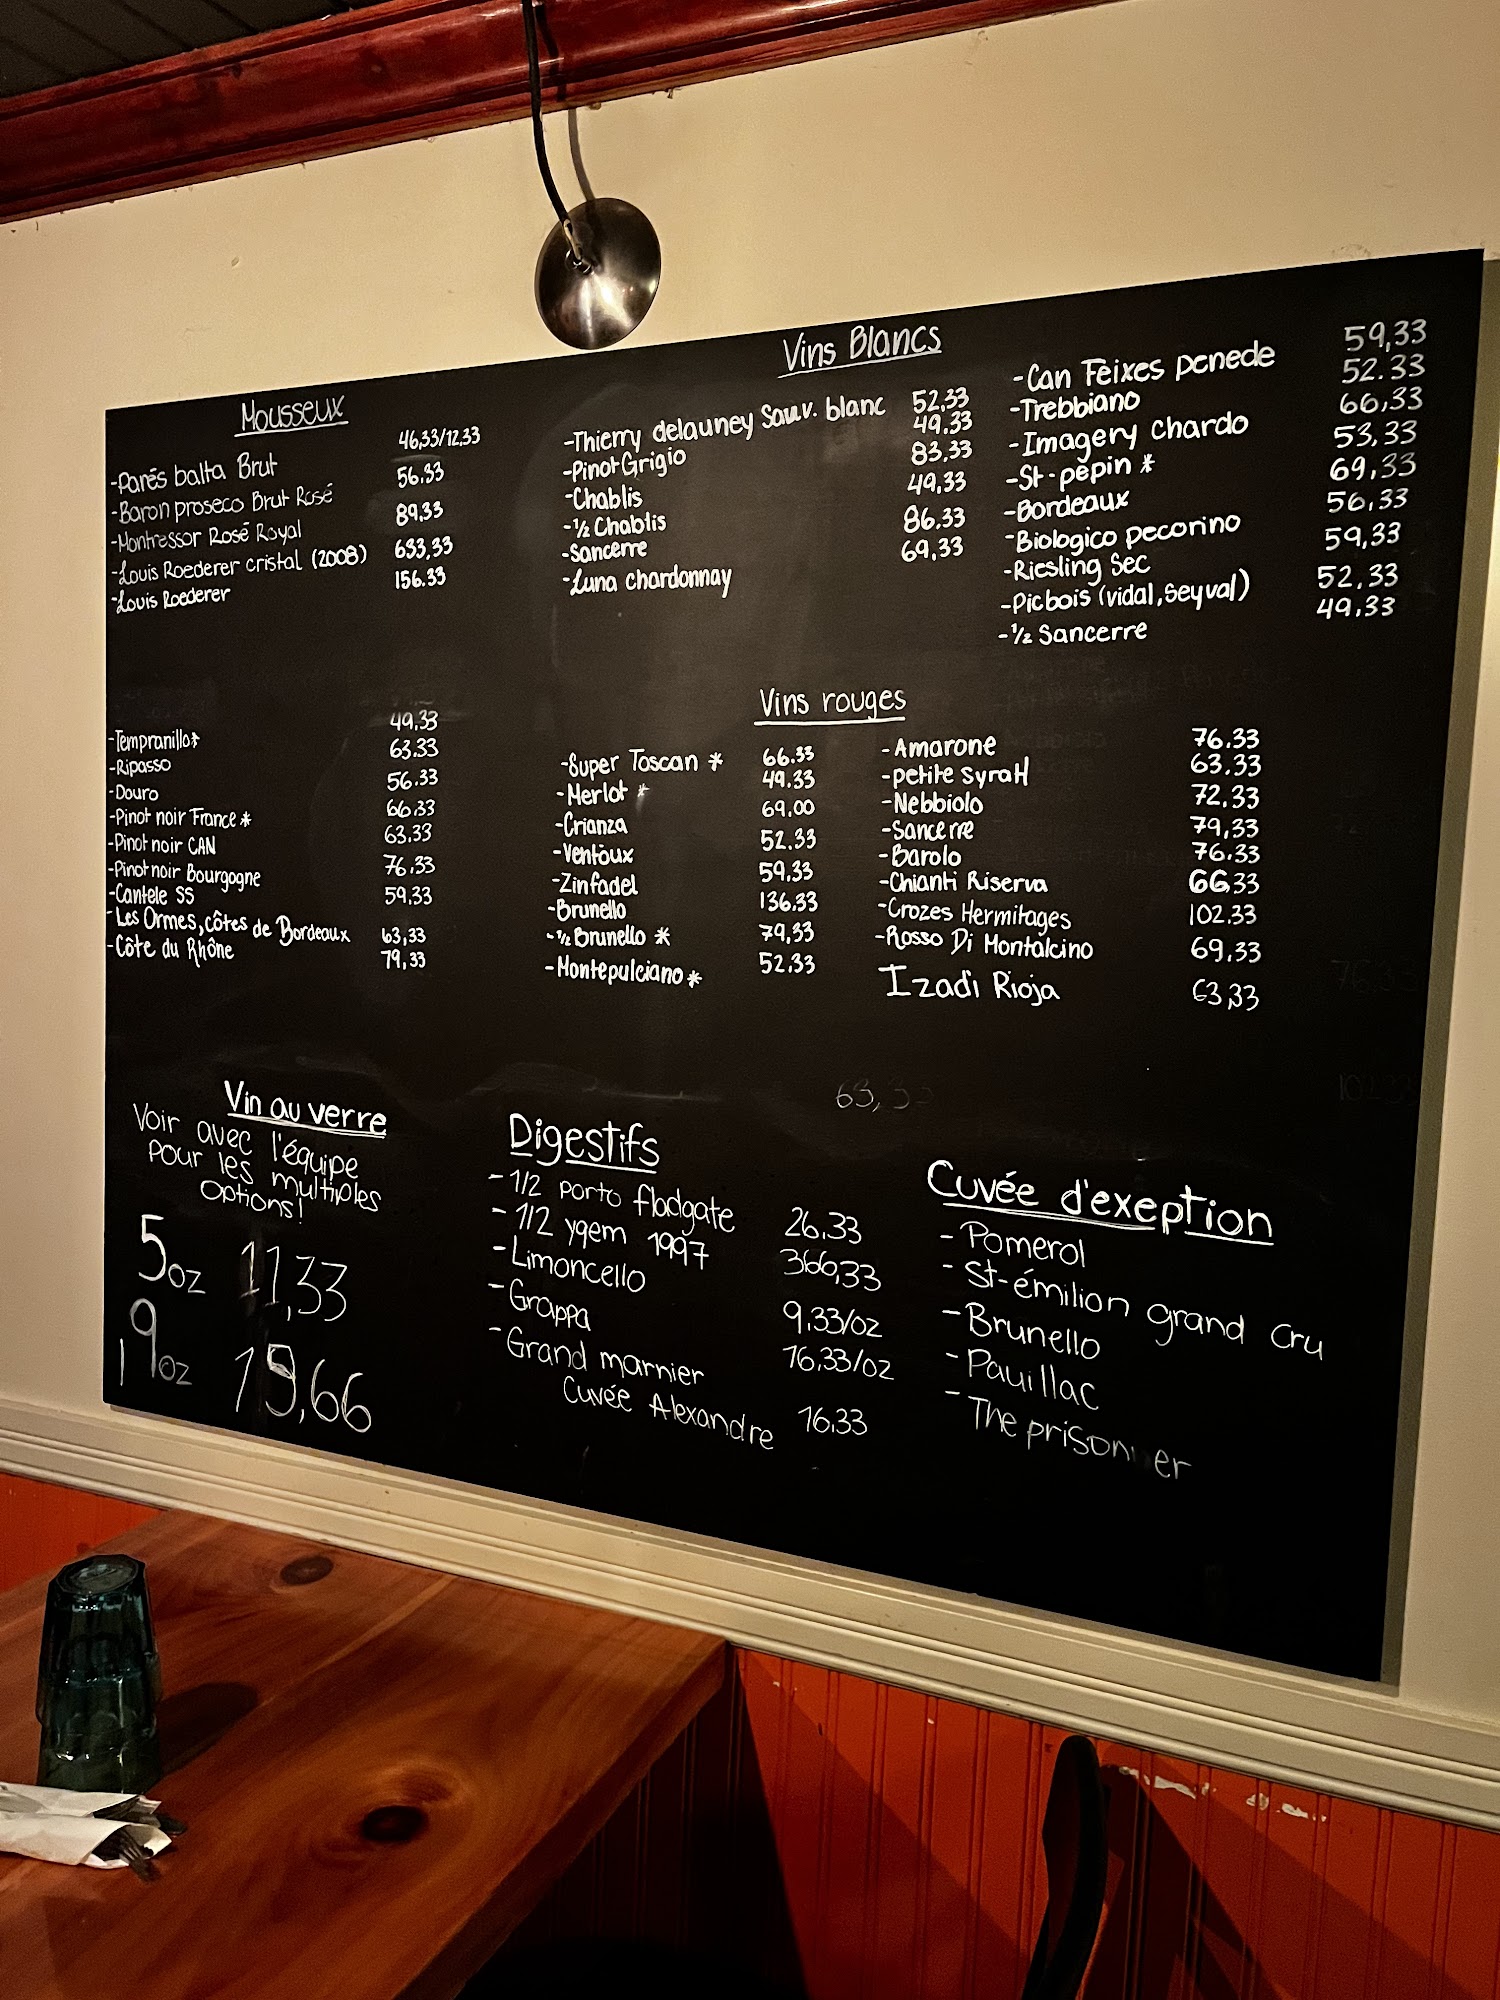 Mousseux
-Parés balta Brut 46,33/12,33
-Baron proseco Brut Rosé 56.33
-Montressor Rosé Royal 89,33
-Louis Roederer cristal (2008) 633,33
-Louis Roederer 156.33
Vins Blancs
-Thierry delauney Sauv. blanc 52,33
-Pinot Grigio 49.33
-Chablis 83,33
-1/2 Chablis 49,33
-Sancerre 86.33
-Luna chardonnay 69,33
-Can Feixes penede 59,33
-Trebbiano 52.33
-Imagery Chardo 66,33
-St-pépin * 53,33
-Bordeaux 69,33
-Biologico pecorino 56,33
-Riesling Sec 59,33
-Picbois (vidal, Seyval) 52.33
-1/2 Sancerre 49,33
Vins rouges
-Tempranillo* 49,33
-Ripasso 63.33
-Douro 56.33
-Pinot noir France * 66,33
-Pinot noir CAN 63.33
-Pinot noir Bourgogne 76,33
-Cantele SS 59,33
-Les Ormes, côtes de Bordeaux 63,33
-Côte du Rhône 79,33
-Super Toscan * 66.33
-Merlot * 49.33
-Crianza 69,00
-Ventoux 52.33
-Zinfadel 59.33
-Brunello 136.33
-1/2 Brunello * 79,33
-Montepulciano * 52.33
-Amarone 76.33
-petite syraH 63,33
-Nebbiolo 72.33
-Sancerre 79,33
-Barolo 76.33
-Chianti Riserva 66,33
-Crozes Hermitages 102.33
-Rosso Di Montalcino 69,33
Izadi Rioja 63,33
Vin au verre
Voir avec l'équipe
pour les multiples
options!
5oz 11,33
9oz 19,66
Digestifs
-1/2 porto fladgate 26,33
-1/2 yqem 1997 366,33
-Limoncello 9,33/oz
-Grappa 16.33/oz
-Grand marnier
Cuvée Alexandre 16.33
Cuvée d'exeption
-Pomerol
-St-émilion grand cru
-Brunello
-Pauillac
-The prisonner